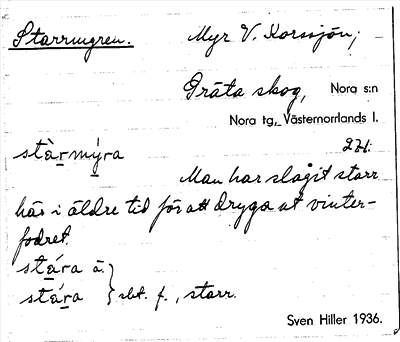 Starrmyren. Myr V. Korssjön,
Gräta skog, Nora s:n
Nora tg, Västernorrlands l.
stàrmýra
Man har slagit starr
här i äldre tid för att dryga ut vinter-
fodret.
stára ā.
stára } sbt. f., starr.
Sven Hiller 1936.